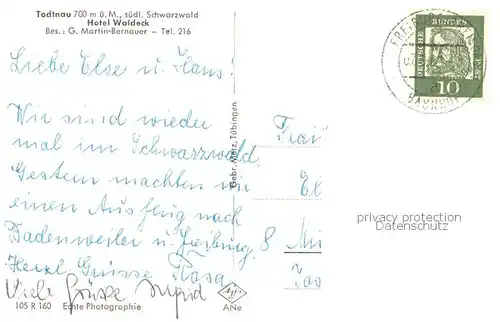 Todtnau 700 m ü. M., südl. Schwarzwald
Hotel Waldeck
Bes.: G. Martin-Bernauer — Tel. 216
Liebe Else u. Hans!
Wir sind wieder
mal im Schwarzwald.
Gestern machten wir
einen Ausflug nach
Badenweiler u. Freiburg.
Herzl. Grüsse Rosa
Viele Grüsse Ingrid
105 R 160 Echte Photographie
Gebr. Metz, Tübingen
ANe
8 Mü
DEUTSCHE BUNDESPOST
10
privacy protection
Datenschutz